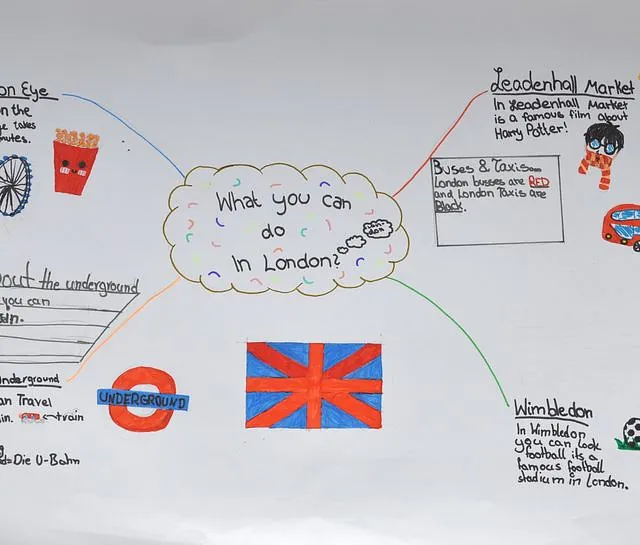 on Eye
on the
e takes
nutes.
Leadenhall Market
In Leadenhall Market
is a famous film about
Harry Potter!
Buses & Taxis...
London busses are RED
and London Taxis are
Black.
What you can
do
in London?
London
out the underground
you can
nderground
an Travel
in. train
UNDERGROUND
d=Die U-Bahn
Wimbledon
In Wimbledon
you can look
football its a
famous football
stadium in London.